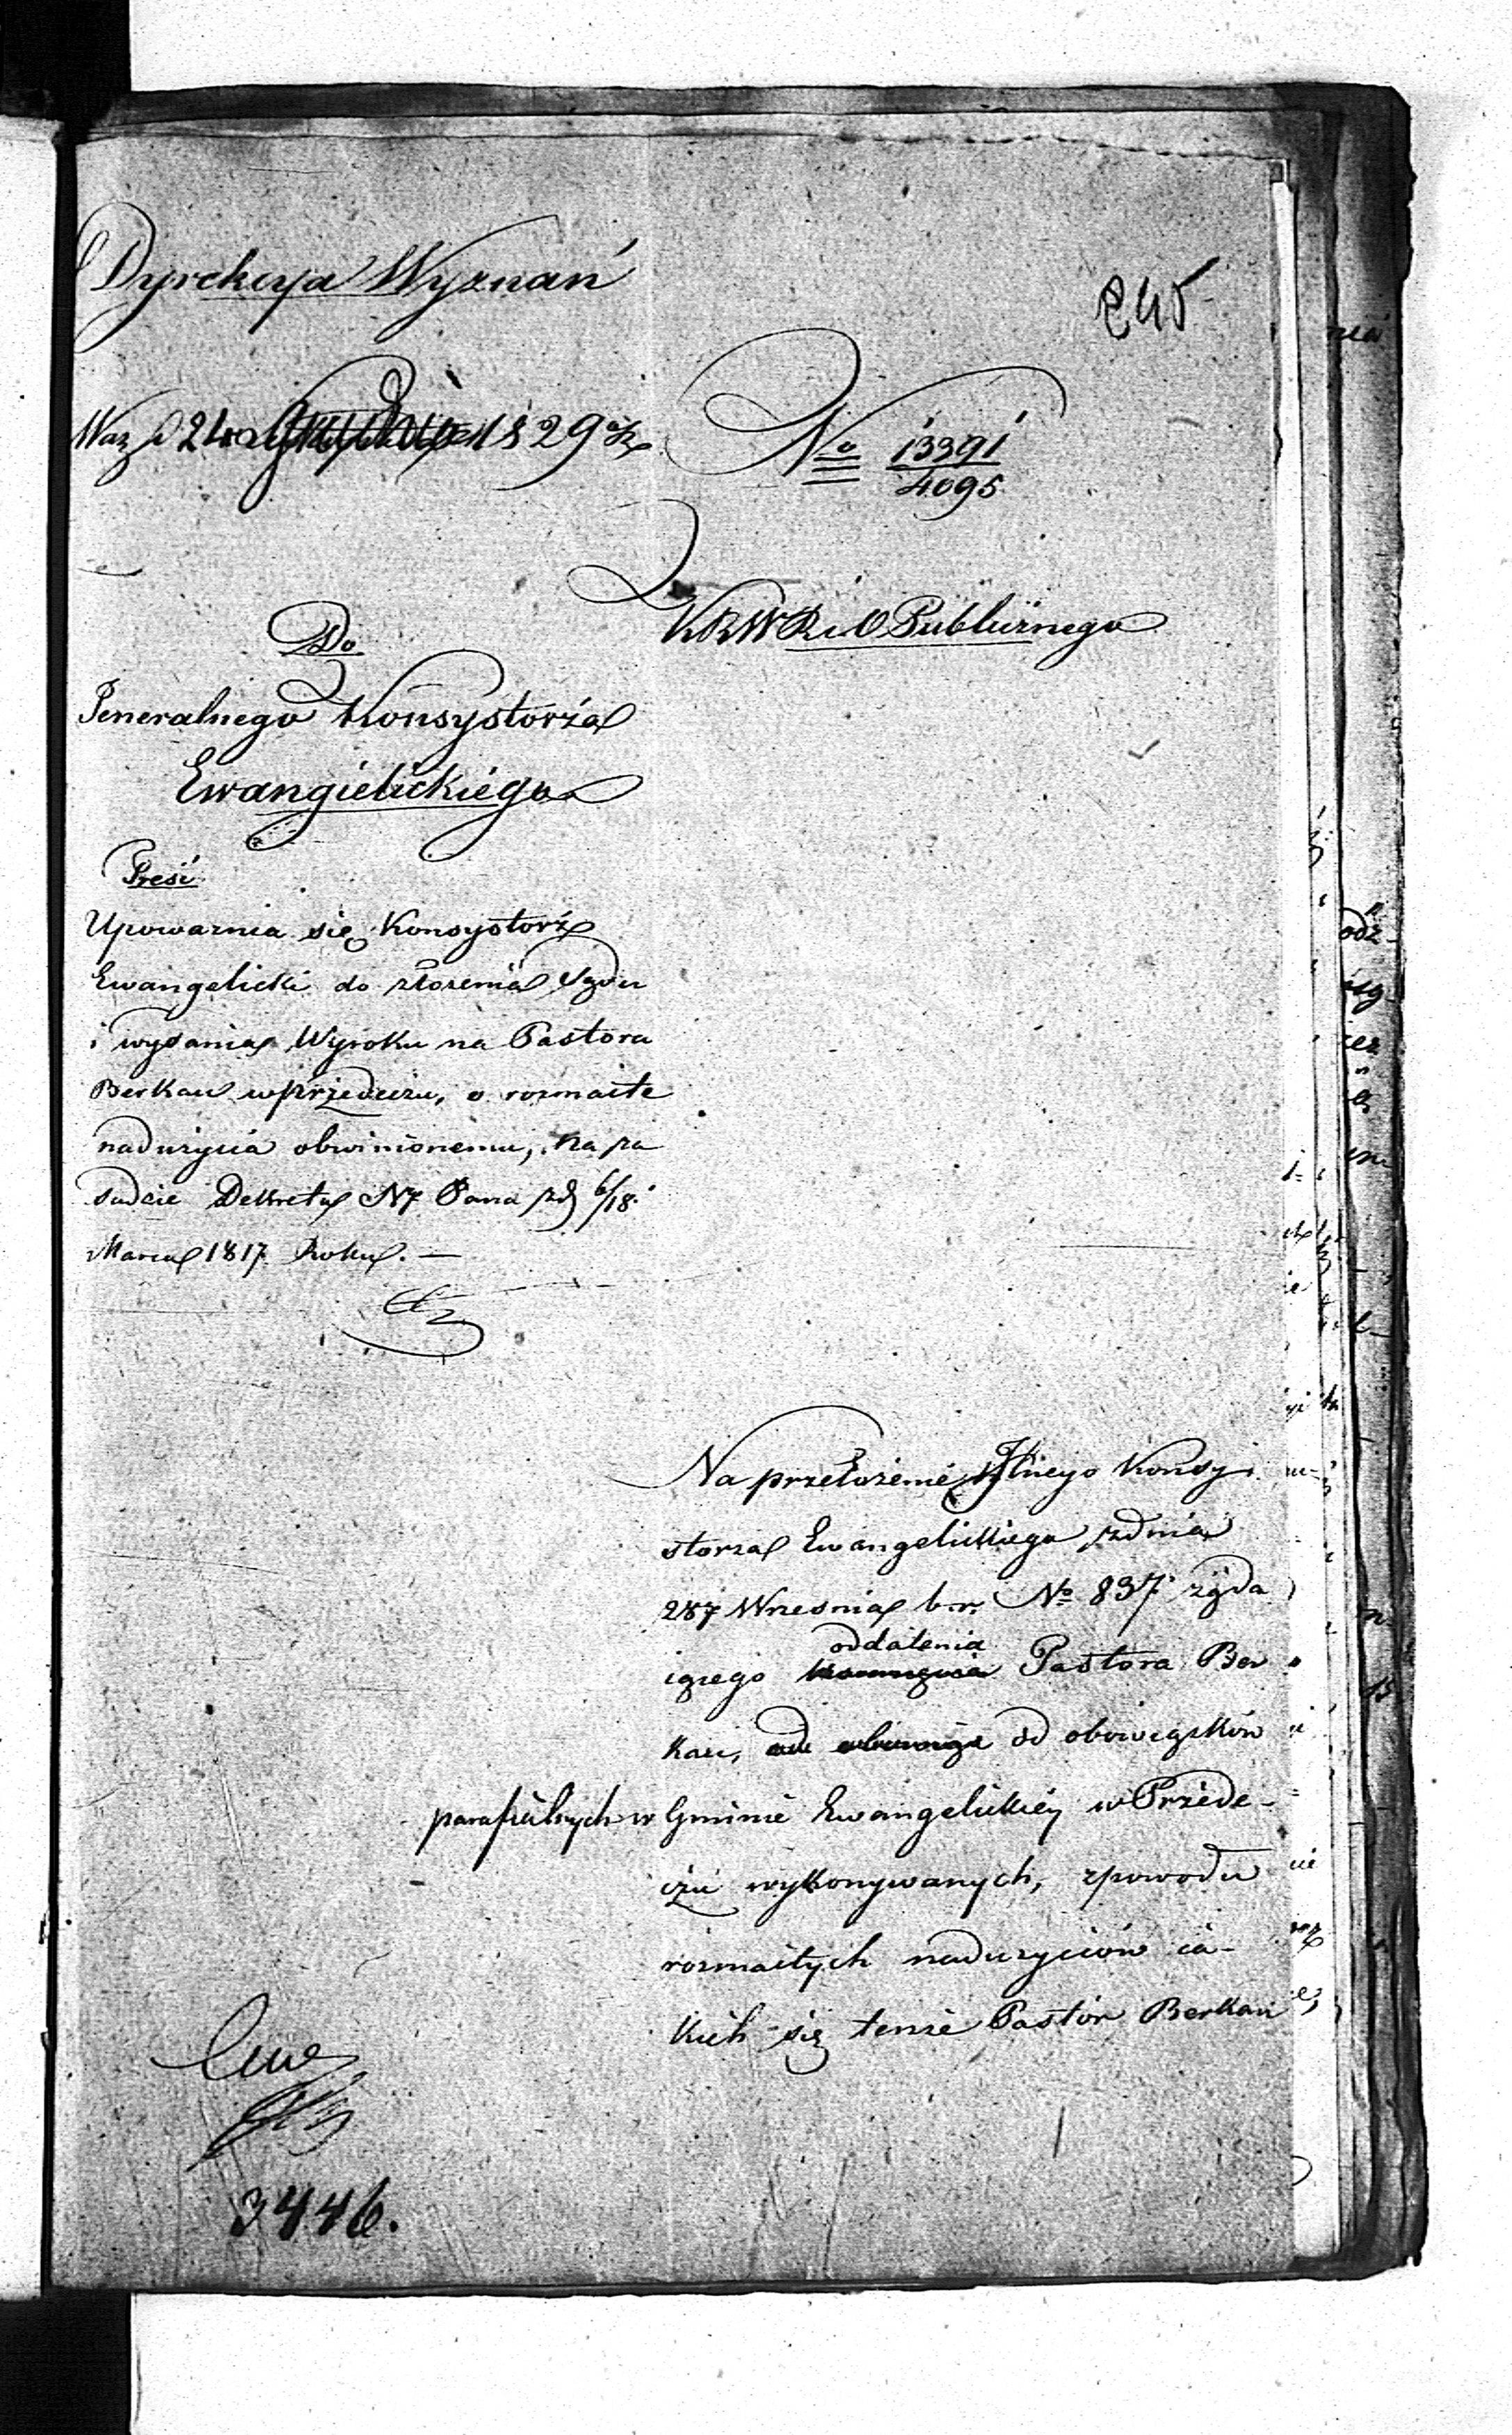 245
Dyrekcya Wyznań
Warz d 24 1829
No 13391
4095
KRWR i O Publicznego
Do
Generalnego Konsystorza
Ewangielickiego
Treść
Upoważnia się Konsystorz
Ewangelicki do złożenia Sądu
i wydania Wyroku na Pastora
Berkau w Przedeczu, o rozmaite
nadużycia obwinionemu, na za
sadzie Dekretu N Pana z d 6/18
Marca 1817 Roku. —
Na przełożenie Konsy
storza Ewangelickiego z dnia
28 Września b.r. No 837 żąda
iącego oddalenia Pastora Ber
kau, od obowiązków
parafialnych w Gminie Ewangelickiéy w Przede-
czu wykonywanych, z powodu
rozmaitych nadużyciów ia-
kich się tenże Pastor Berkau
3446.